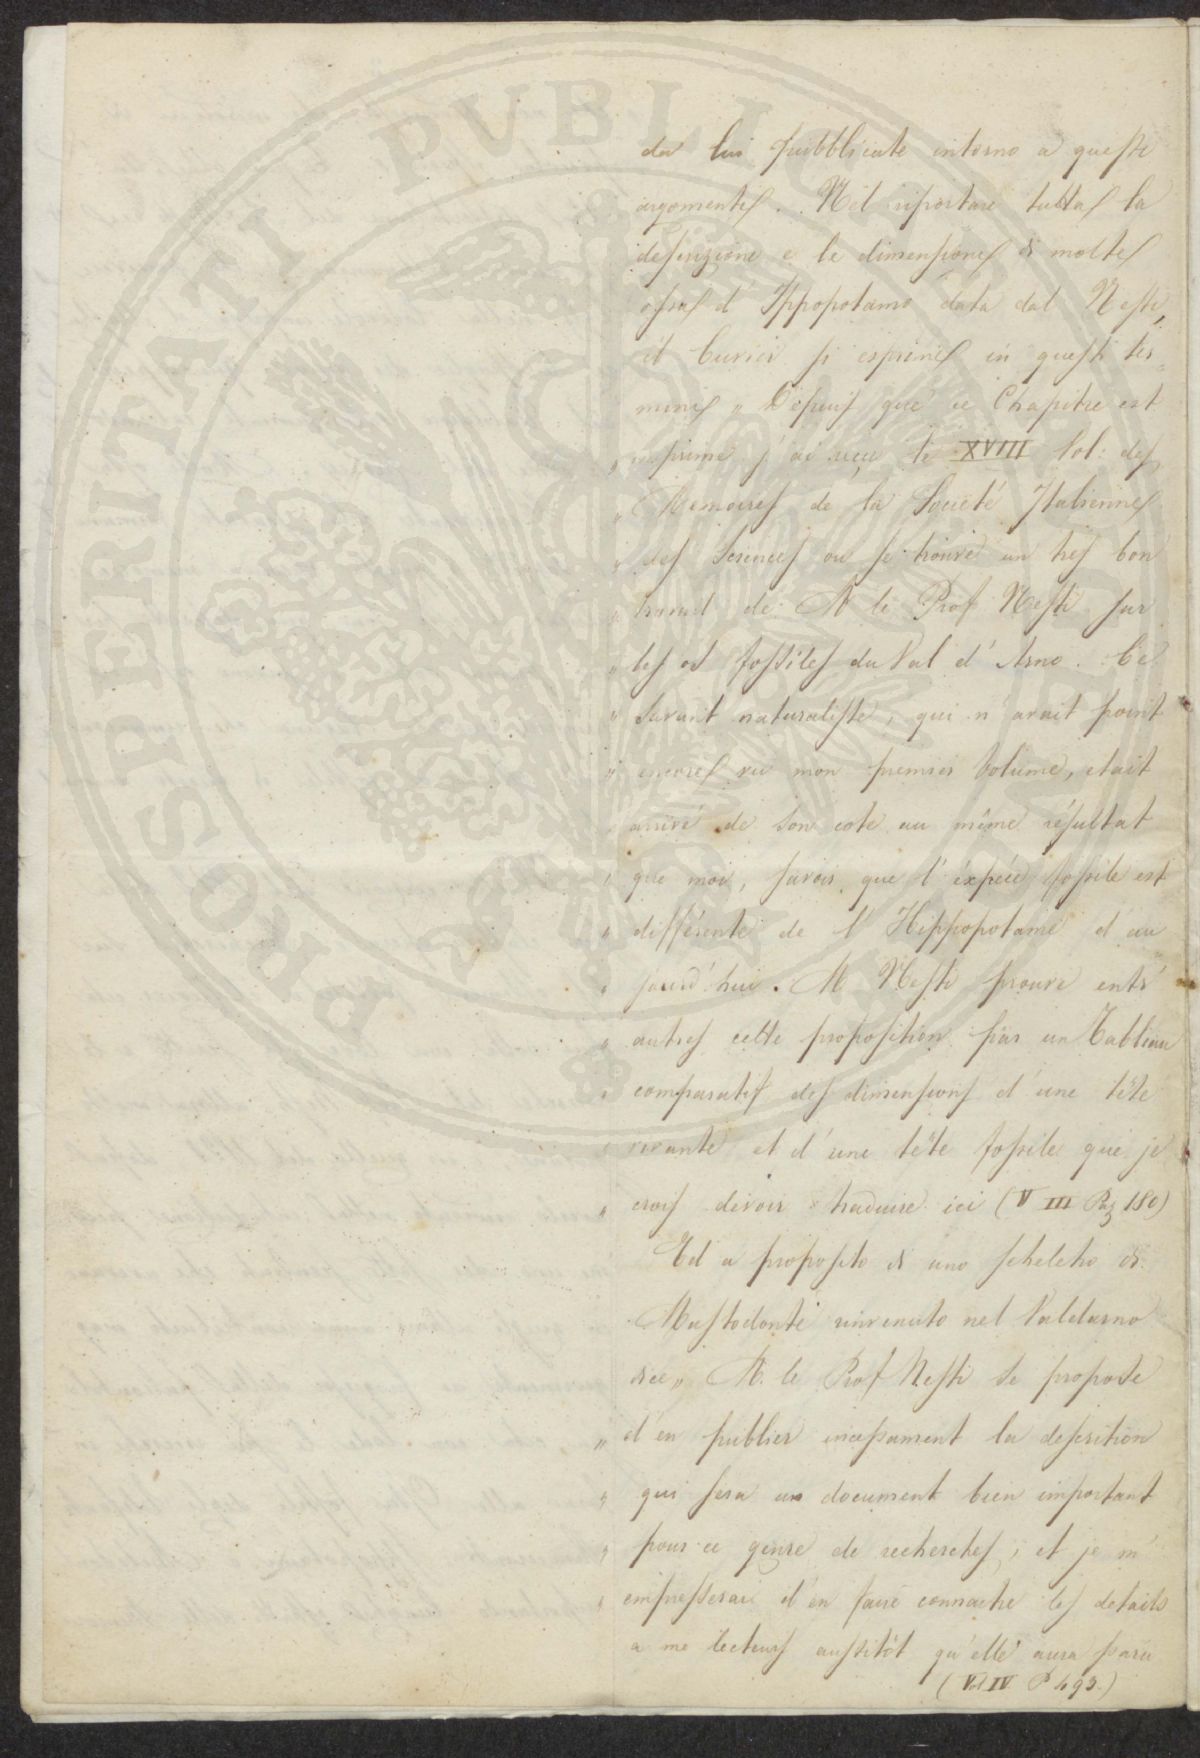 da lui pubblicate intorno a questi
argomenti. Nel riportare tutta la
descrizione e le dimensioni di molte
ossa d' Ippopotamo data dal Nesti,
il Cuvier si esprime in questi ter=
mini „ Depuis que ce Chapitre est
„ imprimé j' ai reçu le XVIII Vol: des
„ Memoires de la Societé Italienne
„ des Sciences ou se trouve un tres bon
„ travail de M le Prof Nesti sur
„ les os fossiles du Val d' Arno. Ce
„ Savant naturaliste, qui n' avait point
„ encore vu mon premier Volume, etait
„ arrivé de son coté au même résultat
„ que moi, savoir que l' éxpéce fossile est
„ différente de l' Hippopotame d' au
„ jourd'hui. M Nesti prouve entr'
„ autres cette proposition par un Tableau
„ comparatif des dimensions d' une tête
„ vivante et d' une tête fossile que je
„ crois devoir traduire ici (V III Pag 180)
Ed a proposito di uno scheletro di
Mastodonte rinvenuto nel Valdarno
dice „ M. le Prof Nesti se propose
„ d'en publier incessament la descrition
„ qui sera un document bien important
„ pour ce genre de recherches; et je m'
„ empresserai d'en faire connaitre les details
a me lecteurs aussitôt qu'elle aura paru
(Vol IV P 493.)
PROSPERITATI PVBLICAE